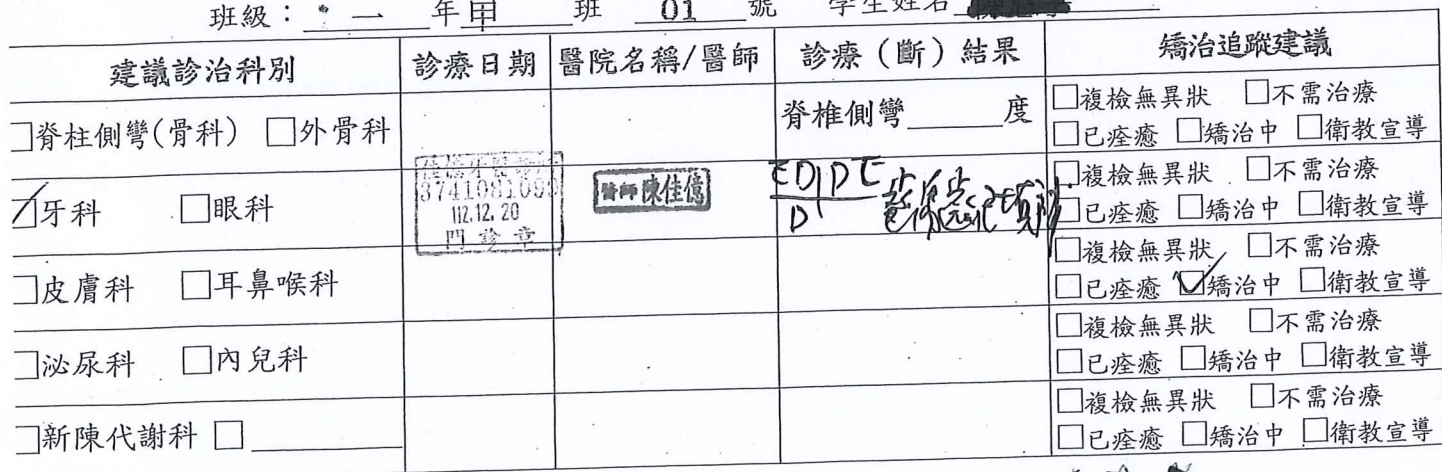 班級： 一 年 甲 班 01 號 學生姓名
建議診治科別 診療日期 醫院名稱/醫師 診療（斷）結果 矯治追蹤建議
□脊柱側彎(骨科) □外骨科 脊椎側彎______度 □複檢無異狀 □不需治療
□已痊癒 □矯治中 □衛教宣導
☑牙科 □眼科 3741081090 112.12.20 門診章 醫師陳佳億 ED|DE D □複檢無異狀 □不需治療
□已痊癒 □矯治中 □衛教宣導
□皮膚科 □耳鼻喉科 □複檢無異狀 □不需治療
□已痊癒 ☑矯治中 □衛教宣導
□泌尿科 □內兒科 □複檢無異狀 □不需治療
□已痊癒 □矯治中 □衛教宣導
□新陳代謝科 □________ □複檢無異狀 □不需治療
□已痊癒 □矯治中 □衛教宣導